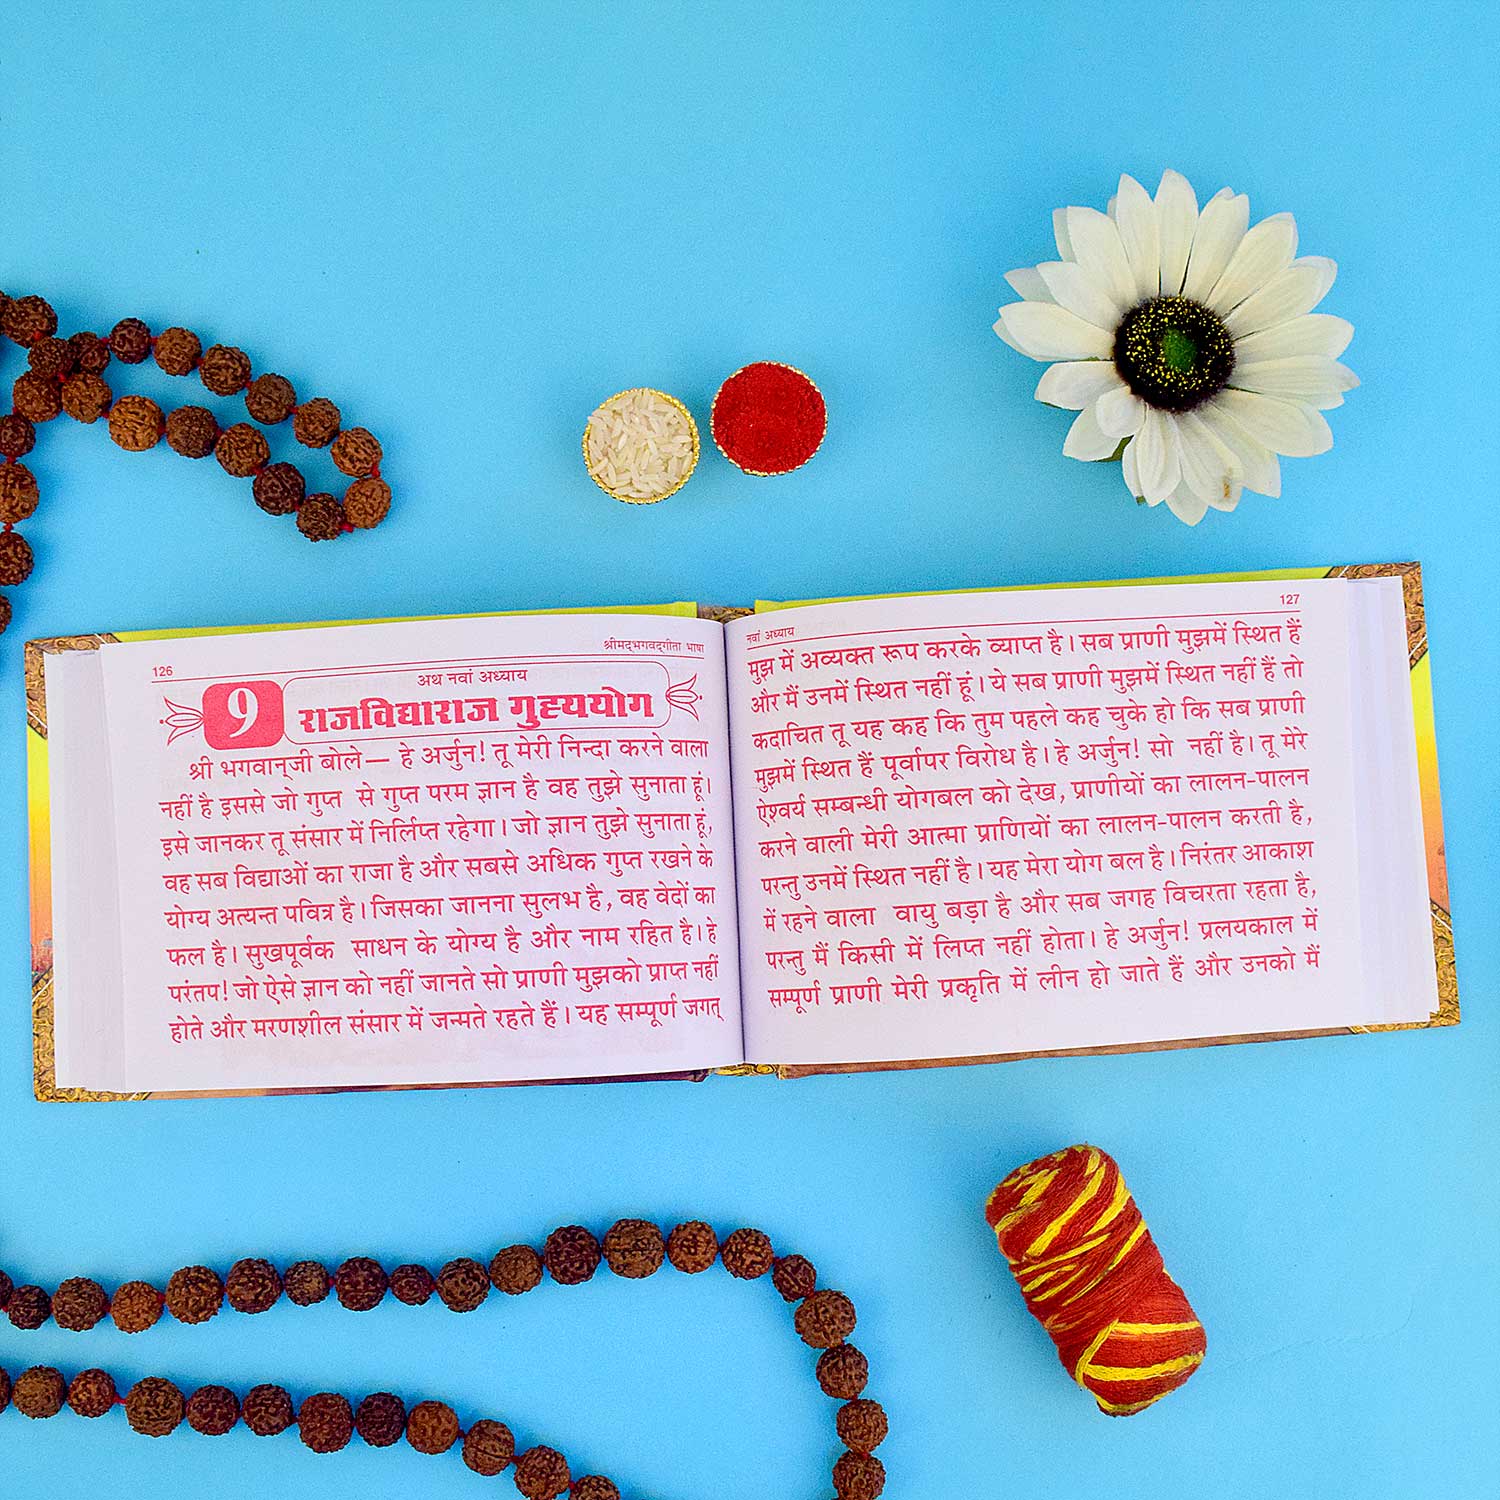 126
श्रीमद्‌भगवद्‌गीता भाषा
अथ नवां अध्याय
9
राजविद्याराज गुह्ययोग
श्री भगवान्‌जी बोले— हे अर्जुन! तू मेरी निन्दा करने वाला
नहीं है इससे जो गुप्त से गुप्त परम ज्ञान है वह तुझे सुनाता हूं।
इसे जानकर तू संसार में निर्लिप्त रहेगा। जो ज्ञान तुझे सुनाता हूं,
वह सब विद्याओं का राजा है और सबसे अधिक गुप्त रखने के
योग्य अत्यन्त पवित्र है। जिसका जानना सुलभ है, वह वेदों का
फल है। सुखपूर्वक साधन के योग्य है और नाम रहित है। हे
परंतप! जो ऐसे ज्ञान को नहीं जानते सो प्राणी मुझको प्राप्त नहीं
होते और मरणशील संसार में जन्मते रहते हैं। यह सम्पूर्ण जगत्
नवां अध्याय
127
मुझ में अव्यक्त रूप करके व्याप्त है। सब प्राणी मुझमें स्थित हैं
और मैं उनमें स्थित नहीं हूं। ये सब प्राणी मुझमें स्थित नहीं हैं तो
कदाचित तू यह कह कि तुम पहले कह चुके हो कि सब प्राणी
मुझमें स्थित हैं पूर्वापर विरोध है। हे अर्जुन! सो नहीं है। तू मेरे
ऐश्वर्य सम्बन्धी योगबल को देख, प्राणीयों का लालन-पालन
करने वाली मेरी आत्मा प्राणियों का लालन-पालन करती है,
परन्तु उनमें स्थित नहीं है। यह मेरा योग बल है। निरंतर आकाश
में रहने वाला वायु बड़ा है और सब जगह विचरता रहता है,
परन्तु मैं किसी में लिप्त नहीं होता। हे अर्जुन! प्रलयकाल में
सम्पूर्ण प्राणी मेरी प्रकृति में लीन हो जाते हैं और उनको मैं